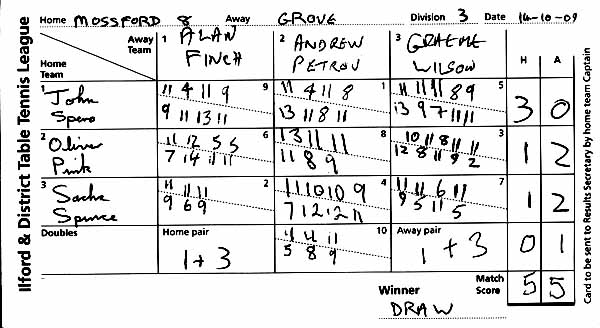 Home MOSSFORD 8 Away GROVE Division 3 Date 14-10-09
Ilford & District Table Tennis League
Away Team
Home Team
1 ALAN FINCH
2 ANDREW PETROV
3 GRAEME WILSON
H A
1 John Spero
9
11 4 11 9
9 11 13 11
1
11 4 11 8
13 11 8 11
5
11 11 11 8 9
13 9 7 11 11
3 0
2 Oliver Pink
6
11 12 5 5
7 14 11 11
8
13 11 11
11 8 9
3
10 11 8 11 11
12 8 11 9 2
1 2
3 Sacha Spence
2
11 11 11
9 6 9
4
11 11 10 10 9
7 12 12 11
7
11 11 6 11
9 5 11 5
1 2
Doubles
Home pair
1 + 3
10
4 4 11
5 8 9
Away pair
1 + 3
0 1
Winner
DRAW
Match Score
5 5
Card to be sent to Results Secretary by home team Captain